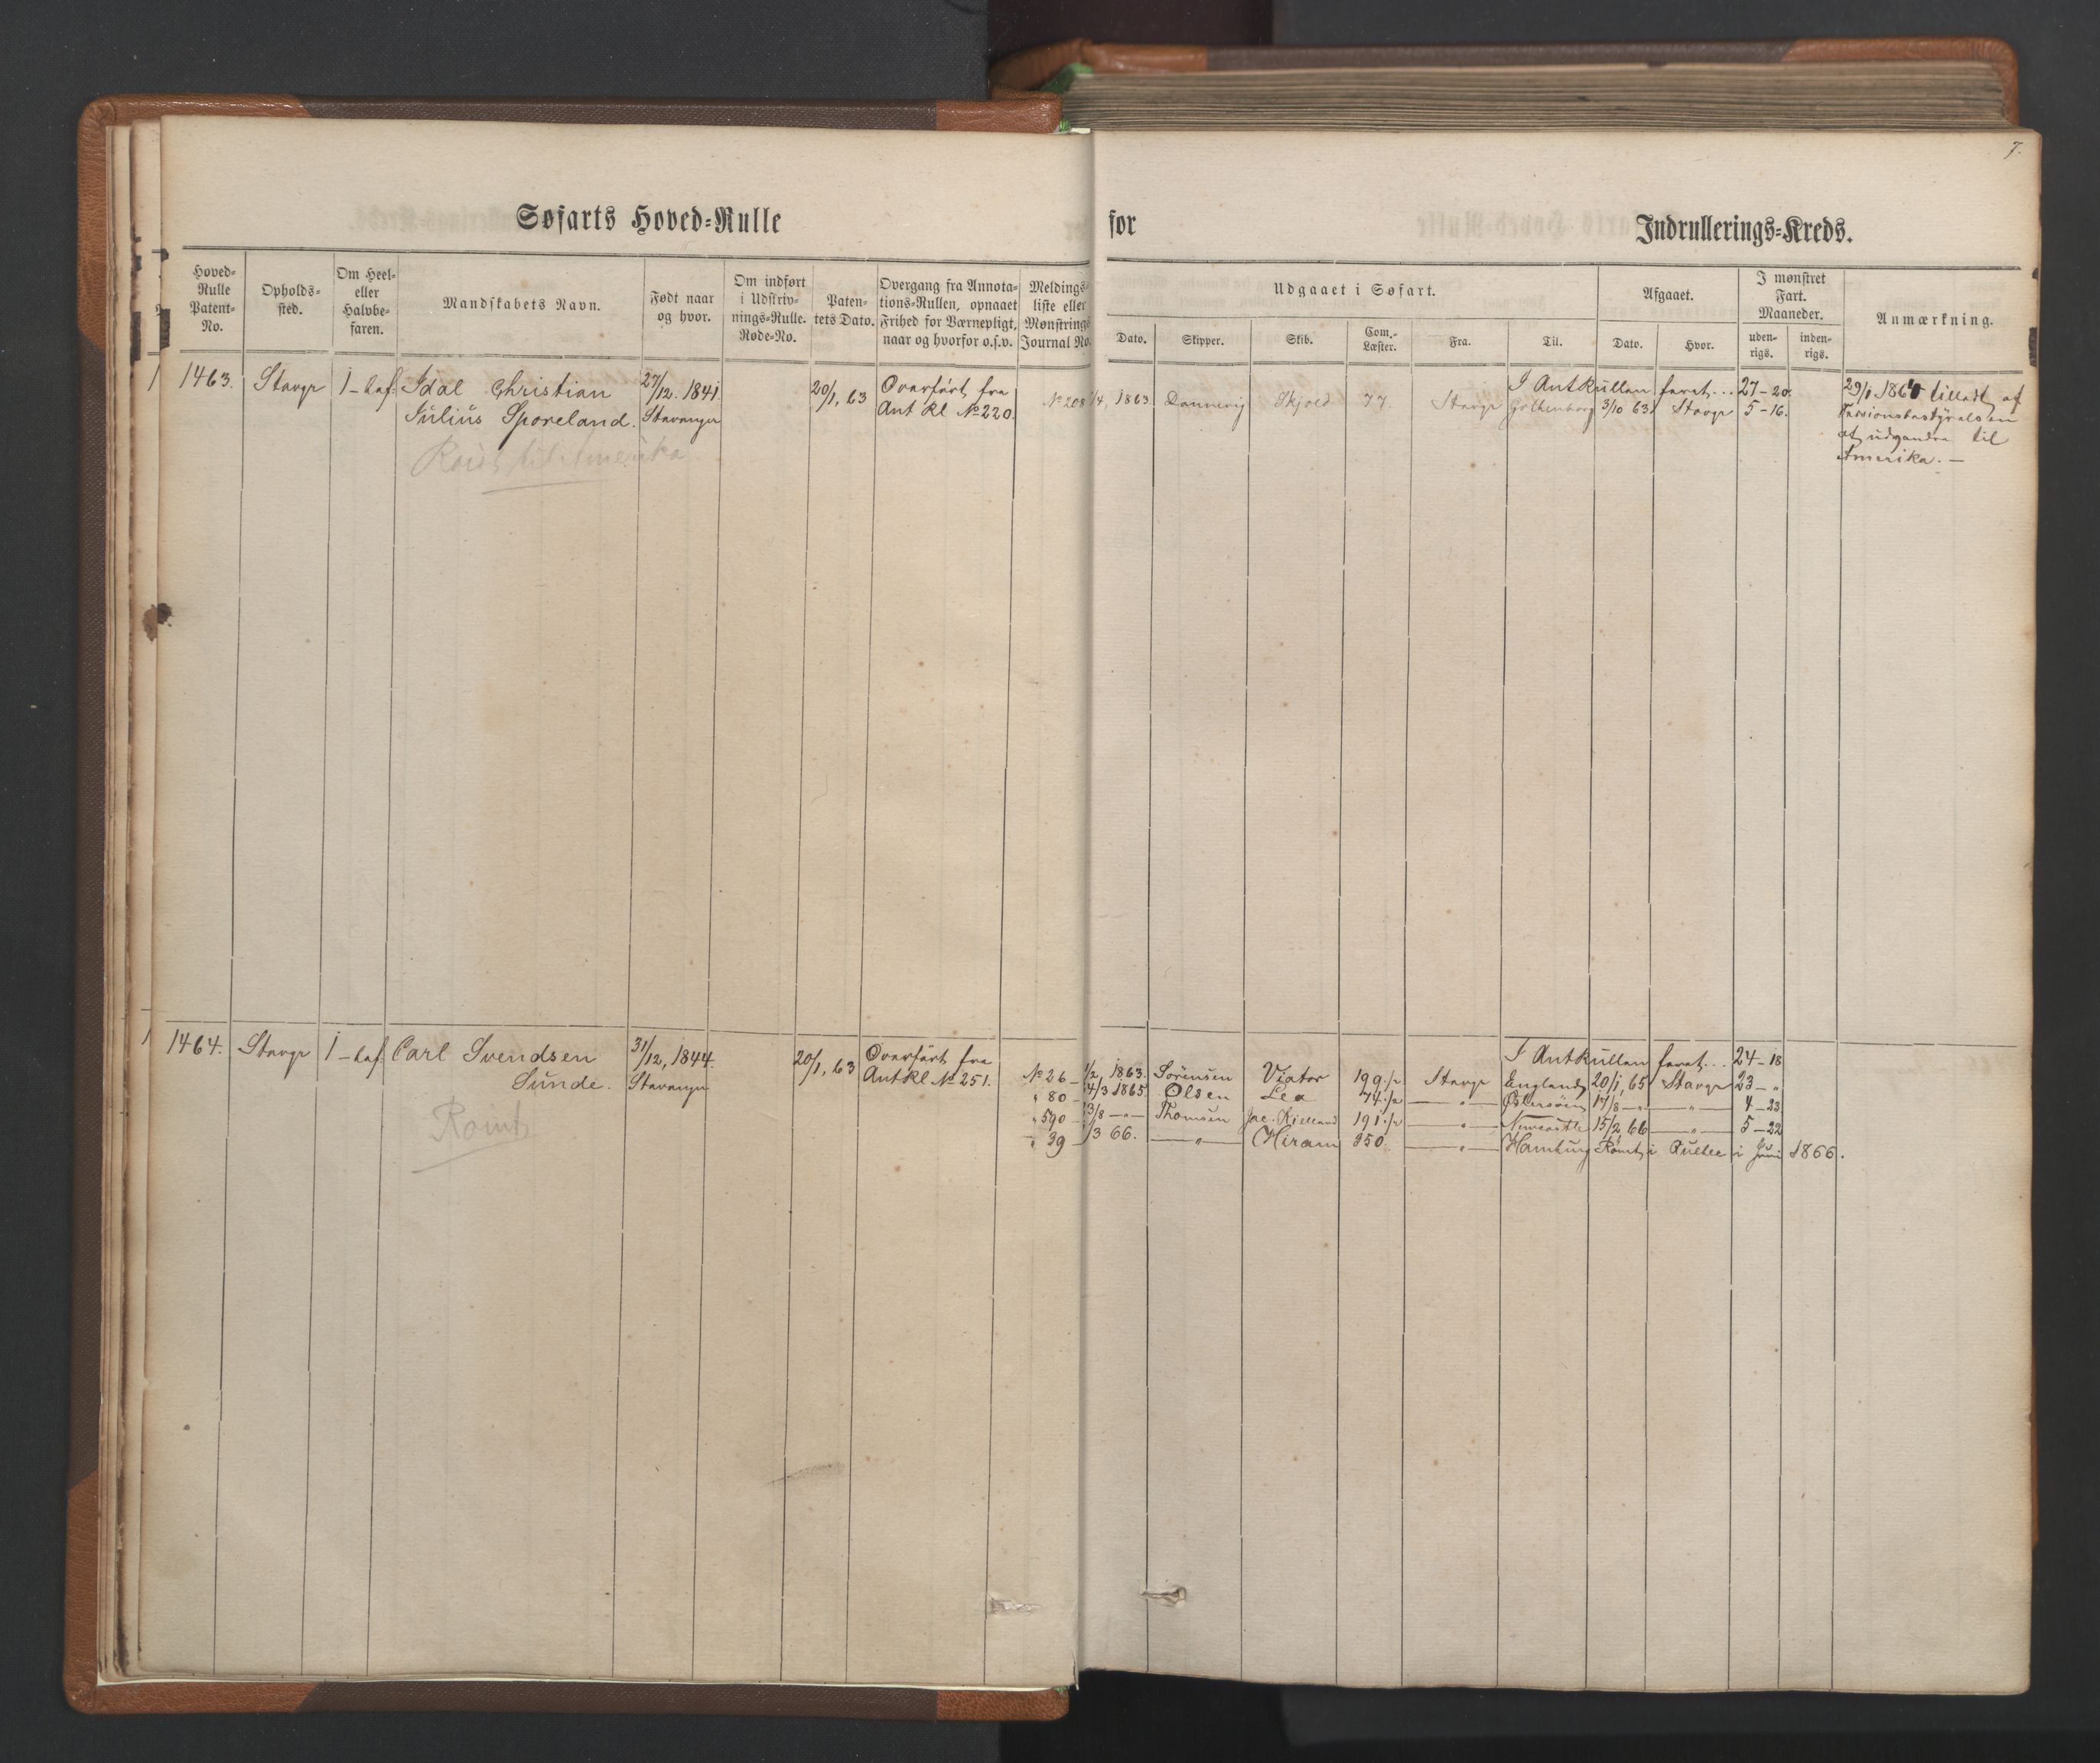 7.
Søfarts Hoved-Rulle for Indrullerings-Kreds.
Hoved-Rulle Patent-No.
Opholds-sted.
Om Heel- eller Halvbe-faren.
Mandskabets Navn.
Født naar og hvor.
Om indført i Udskriv-nings-Rulle. Rode-No.
Paten-tets Dato.
Overgang fra Annota-tions-Rullen, opnaaet Frihed for Værnepligt, naar og hvorfor o.s.v.
Meldings-liste eller Mønstrings Journal No.
Udgaaet i Søfart.
Dato. Skipper. Skib. Com.-Læster. Fra. Til.
Afgaaet.
Dato. Hvor.
I mønstret Fart. Maaneder.
uden-rigs. inden-rigs.
Anmærkning.
1463. Stavgr 1-haf. Idal Christian 27/12. 1841 20/1, 63 Overført fra I Antkullen faret... 27-20. 29/1 1866 tilladt af
Julius Sporeland. Stavanger Ant Rl No 220. No 208 1/4, 1863. Dannevig Skjold 77 Stavgr Gothenborg 3/10 63. Stavgr 5-16.
Reist til Amerika at udvandre til
Amerika. —
1464. Stavgr 1-haf. Carl Svendsen 31/12, 1844. 20/1, 63 Overført fra I Antkullen faret... 24-18
Sunde. Stavanger Ant Rl No 251. No 26 1/2 1863. Sørensen Viator 199 1/2 Stavgr England 20/1, 65 Stavgr 23 - "
" 80 4/3 1865 Olsen Lea 74 1/2 — " — Østersøen 17/8 — " — — " — 4-23
" 590 3/8 — " — Thomsen Jac. Kielland 191 1/2 — " — Newcastle 15/2 66 — " — 5-22
" 39 1/3 66. — " — Hiram 350. — " — Hamburg Rømt i Quebec i Juni 1866.
Rømt